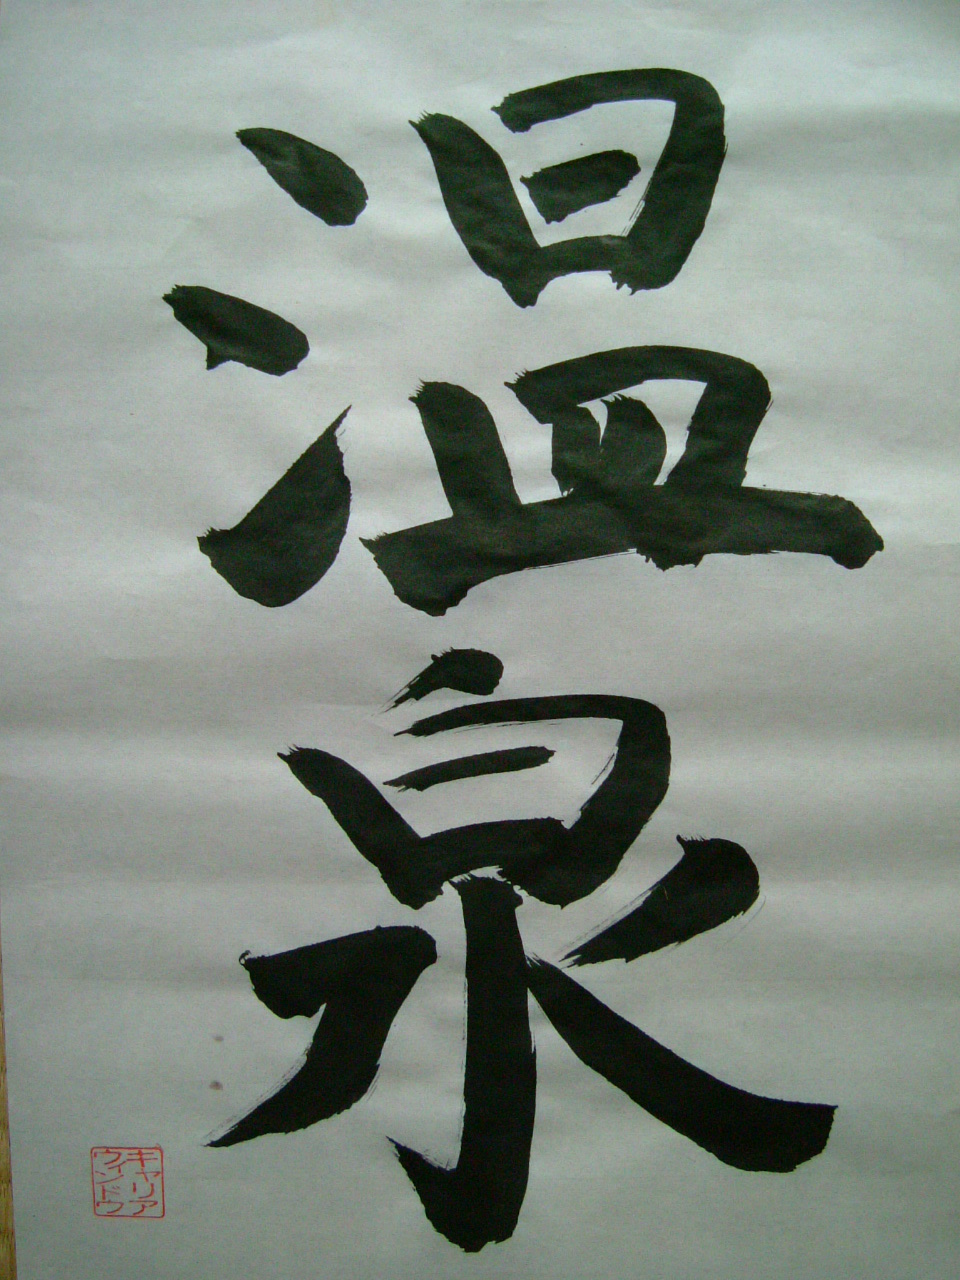 温泉
キャリア
ウィンドウ